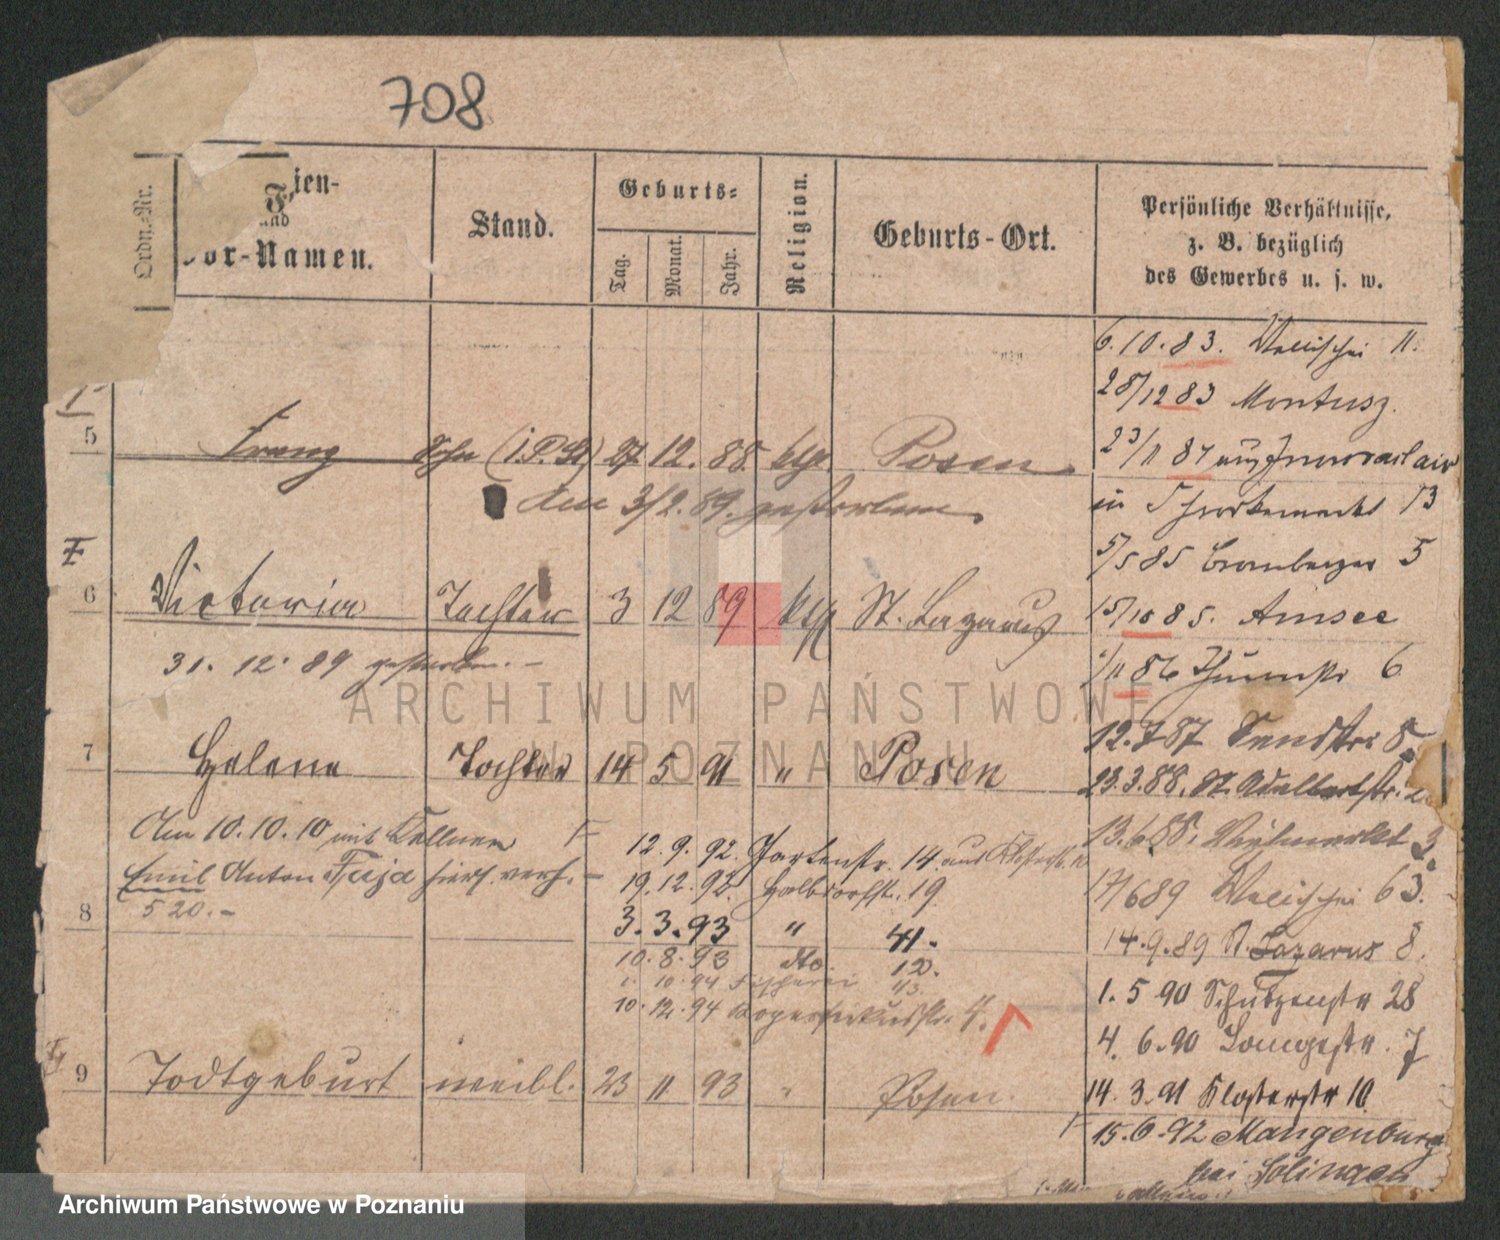 708
Ordn.-Nr.
F ien-
und
or-Namen.
Stand.
Geburts-
Tag.
Monat.
Jahr.
Religion.
Geburts-Ort.
Persönliche Verhältnisse,
z. B. bezüglich
des Gewerbes u. s. w.
6.10.83. Wallischei 11.
28/12 83 Montusz.
5
Franz Sohn 27 12. 88. ktl Posen
23/11 87 aus Inowrazlaw
am 3/2. 89. gestorben
in 13
5/5 85 Bromberger 5
6 Victoria Tochter 3 12 89 ktl St. Lazarus
15/10 85.
31. 12. 89 gestorben. -
86 Thurmstr 6
7 Helene Tochter 14 5 91 " Posen
12.7 87 8
23.3.88. St. Adalbertstr.
Am 10.10.10 mit Kellner F
Emil Anton Tuja hiers. verh. -
520.-
12.9.92. Gartenstr. 14. aus Klosterstr.
13.6.88. Viehmarkt 3
19.12.92. Halbdorfstr. 19
17/6 89 Wallischei 63.
8
3.3.93 " 41.
14.9.89 St. Lazarus 8.
10.8.93 dto. 12.
10.94 Fischerei 43.
1.5 90 Schützenstr 28
10.12.94 Kopernikusstr. 4.
4.6.90 Langestr. 7
9 Todtgeburt weibl. 23 11 93 " Posen.
14.3.91 Klosterstr 10
F 15.6.92 Mangenburg
bei Solingen
ARCHIWUM PAŃSTWOWE
W POZNANIU
Archiwum Państwowe w Poznaniu